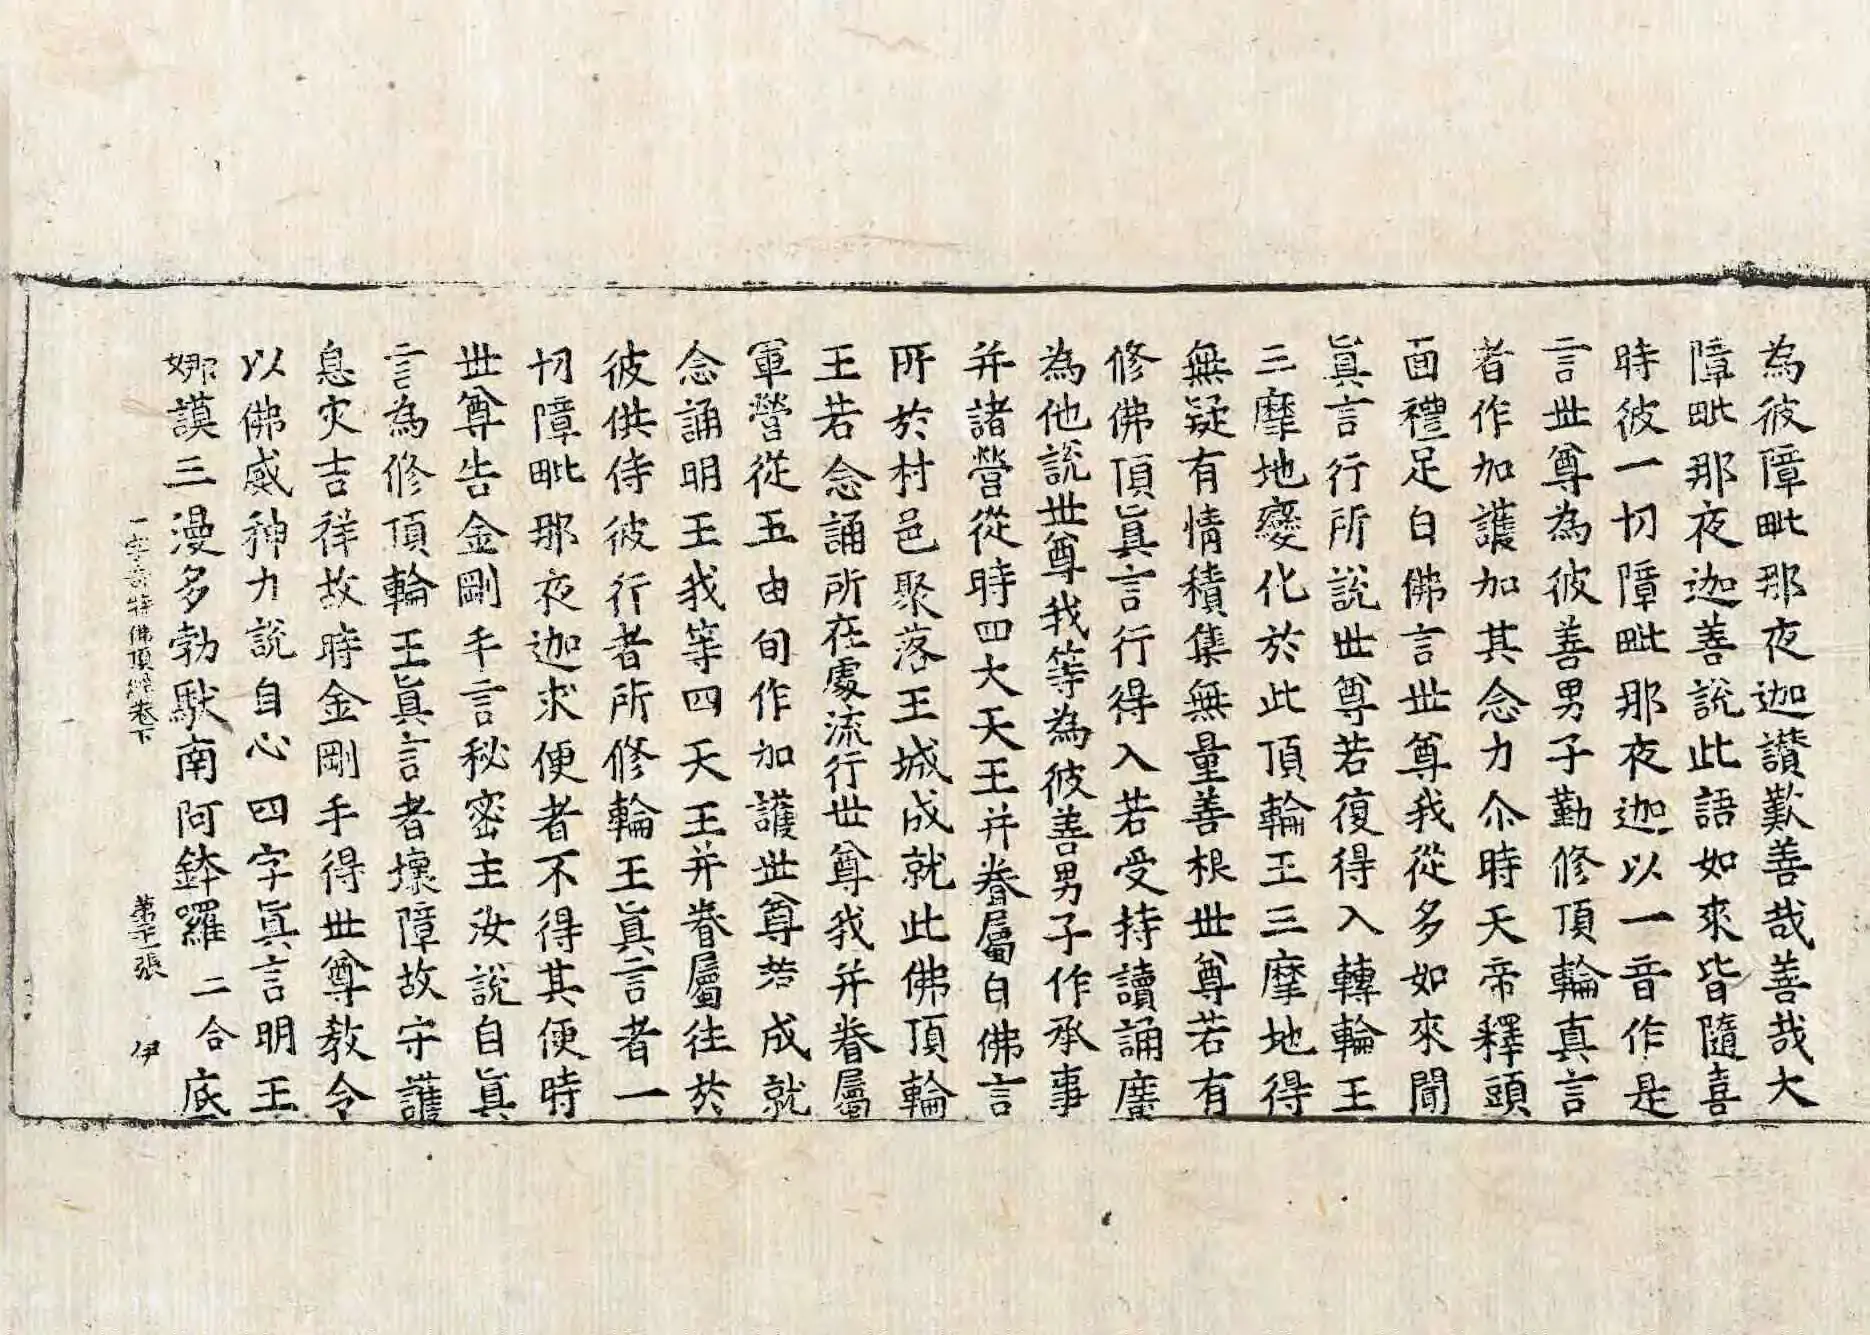 為彼障毗那夜迦讃歎善哉善哉大
障毗那夜迦善說此語如來皆隨喜
時彼一切障毗那夜迦以一音作是
言世尊為彼善男子勤修頂輪真言
者作加護加其念力尒時天帝釋頭
面禮足白佛言世尊我從多如來聞
眞言行所說世尊若復得入轉輪王
三摩地變化於此頂輪王三摩地得
無疑有情積集無量善根世尊若有
修佛頂眞言行得入若受持讀誦廣
為他說世尊我等為彼善男子作承事
并諸營從時四大天王并眷屬白佛言
所於村邑聚落王城成就此佛頂輪
王若念誦所在處流行世尊我并眷屬
軍營從五由旬作加護世尊若成就
念誦明王我等四天王并眷屬往於
彼供侍彼行者所修輪王眞言者一
切障毗那夜迦求便者不得其便時
世尊告金剛手言秘密主汝說自眞
言為修頂輪王眞言者壞障故守護
息灾吉祥故時金剛手得世尊教令
以佛威神力說自心四字眞言明王
娜謨三漫多勃馱南阿鉢羅二合底
一字奇特佛頂經卷下 張 伊